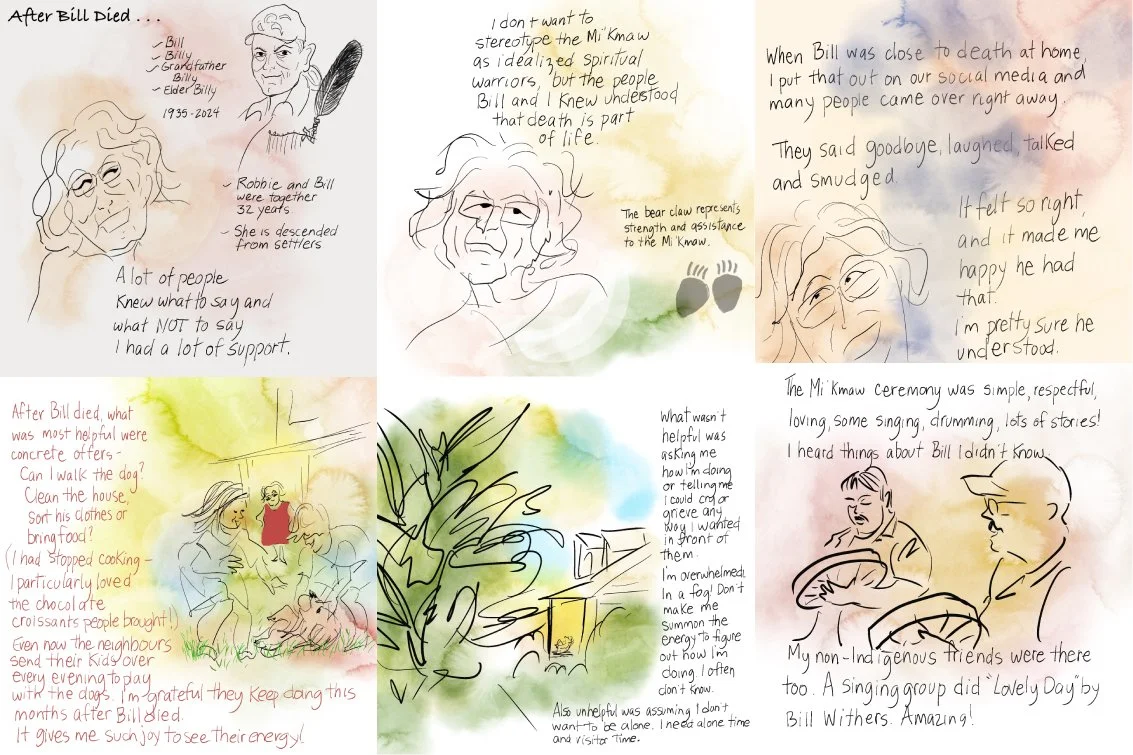 After Bill Died . . .
- Bill
- Billy
- Grandfather
Billy
- Elder Billy
1935-2024
- Robbie and Bill
were together
32 years
- She is descended
from settlers
A lot of people
knew what to say and
what NOT to say
I had a lot of support.
I don't want to
stereotype the Mi'kmaw
as idealized spiritual
warriors, but the people
Bill and I knew understood
that death is part
of life.
The bear claw represents
strength and assistance
to the Mi'kmaw.
When Bill was close to death at home,
I put that out on our social media and
many people came over right away.
They said goodbye, laughed, talked
and smudged.
It felt so right,
and it made me
happy he had
that.
I'm pretty sure he
understood.
After Bill died, what
was most helpful were
concrete offers -
Can I walk the dog?
Clean the house,
Sort his clothes or
bring food?
(I had stopped cooking -
I particularly loved
the chocolate
croissants people brought!)
Even now the neighbours
send their kids over
every evening to play
with the dogs. I'm grateful they keep doing this
months after Bill died.
It gives me such joy to see their energy!
What wasn't
helpful was
asking me
how I'm doing
or telling me
I could cry or
grieve any
way I wanted
in front of
them.
I'm overwhelmed!
In a fog! Don't
make me
summon the
energy to figure
out how I'm
doing. I often
don't know.
Also unhelpful was assuming I don't
want to be alone. I need alone time
and visitor time.
The Mi'kmaw ceremony was simple, respectful,
loving, some singing, drumming, lots of stories!
I heard things about Bill I didn't know.
My non-Indigenous friends were there
too. A singing group did "Lovely Day" by
Bill Withers. Amazing!